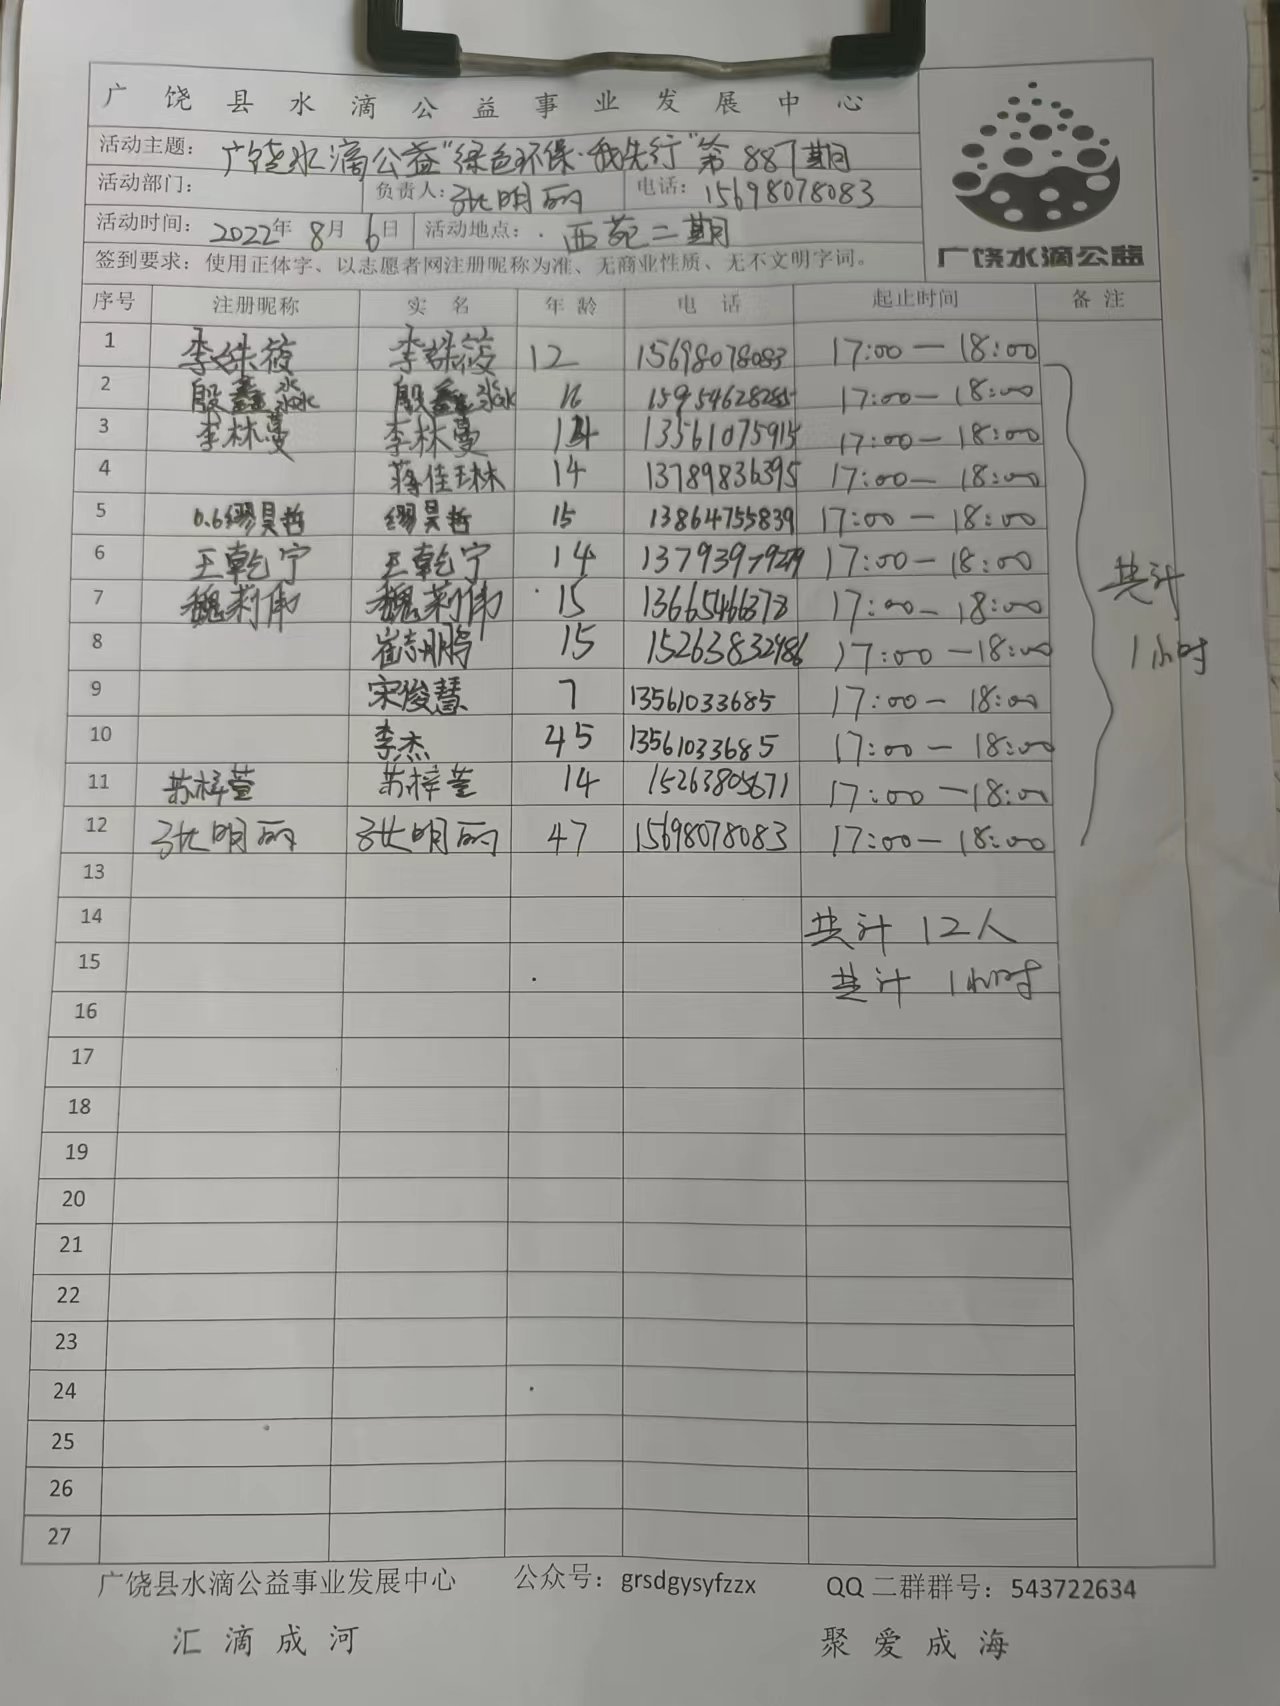 广饶县水滴公益事业发展中心
活动主题：广饶水滴公益“绿色环保·我先行”第887期
活动部门： 负责人：张明丽 电话：15698078083
活动时间：2022年8月6日 活动地点：西苑二期
签到要求：使用正体字、以志愿者网注册昵称为准、无商业性质、无不文明字词。
广饶水滴公益
序号 注册昵称 实名 年龄 电话 起止时间 备注
1 李姝筱 李姝筱 12 15698078083 17:00—18:00
2 殷鑫淼 殷鑫淼 16 15954628285 17:00—18:00
3 李林蔓 李林蔓 14 13561075915 17:00—18:00
4 蒋佳琳 14 13789836395 17:00—18:00
5 0.6缪昊哲 缪昊哲 15 13864755839 17:00—18:00
6 王乾宁 王乾宁 14 17:00—18:00
7 魏莉伟 魏莉伟 15 13665466378 17:00—18:00
8 崔志鹏 15 15263832486 17:00—18:00
9 宋俊慧 7 13561033685 17:00—18:00
10 李杰 45 13561033685 17:00—18:00
11 苏梓萱 苏梓萱 14 15263805671 17:00—18:00
12 张明丽 张明丽 47 15698078083 17:00—18:00
共计
1小时
13
14 共计 12人
15 共计 1小时
16
17
18
19
20
21
22
23
24
25
26
27
广饶县水滴公益事业发展中心 公众号：grsdgysyfzzx QQ二群群号：543722634
汇滴成河 聚爱成海